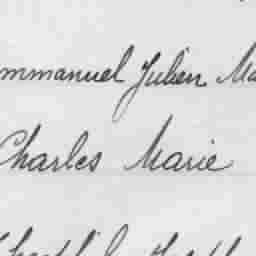 mmanuel Julien Ma
Charles Marie